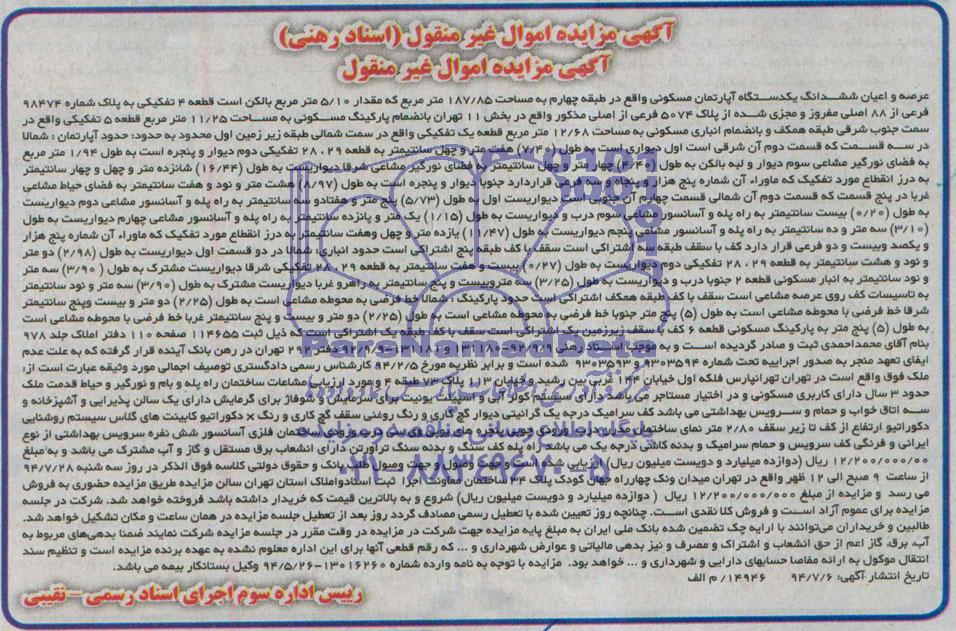 آگهی مزایده اموال غیر منقول (اسناد رهنی)
آگهی مزایده اموال غیر منقول
عرصه و اعیان ششدانگ یکدستگاه آپارتمان مسکونی واقع در طبقه چهارم به مساحت ۱۸۷/۸۵ متر مربع که مقدار ۵/۱۰ متر مربع بالکن است قطعه ۴ تفکیکی به پلاک شماره ۹۸۴۷۴
فرعی از ۸۸ اصلی مفروز و مجزی شده از پلاک ۵۰۷۴ فرعی از اصلی مذکور واقع در بخش ۱۱ تهران بانضمام پارکینگ مسکونی به مساحت ۱۱/۲۵ متر مربع قطعه ۵ تفکیکی واقع در
سمت جنوب شرقی طبقه همکف و بانضمام انباری مسکونی به مساحت ۱۲/۶۸ متر مربع قطعه یک تفکیکی واقع در سمت شمالی طبقه زیر زمین اول محدود به حدود: حدود آپارتمان : شمالا
در سه قسمت که قسمت دوم آن شرقی است اول دیواری است به طول (۷/۴۰) هفت متر و چهل سانتیمتر به قطعه ۲۸،۲۹ تفکیکی دوم دیوار و پنجره است به طول ۱/۹۴ متر مربع
به فضای نورگیر مشاعی سوم دیوار و لبه بالکن به طول (۴/۴۰) چهار متر و چهل سانتیمتر به فضای نورگیر مشاعی شرقا دیواریست به طول (۱۶/۴۴) شانزده متر و چهل و چهار سانتیمتر
به درز انقطاع مورد تفکیک که ماوراء آن شماره پنج هزار و پنجاه و سه فرعی قراردارد جنوبا دیوار و پنجره است به طول (۸/۹۷) هشت متر و نود و هفت سانتیمتر به فضای حیاط مشاعی
غربا در پنج قسمت که قسمت دوم آن شمالی قسمت چهارم آن جنوبی است دیواریست اول به طول (۵/۷۳) پنج متر و هفتادو سه سانتیمتر به راه پله و آسانسور مشاعی دوم دیواریست
به طول (۰/۲۰) بیست سانتیمتر به راه پله و آسانسور مشاعی سوم درب و دیواریست به طول (۱/۱۵) یک متر و پانزده سانتیمتر به راه پله و آسانسور مشاعی چهارم دیواریست به طول
(۳/۱۰) سه متر و ده سانتیمتر به راه پله و آسانسور مشاعی پنجم دیواریست به طول (۱۱/۴۷) یازده متر و چهل وهفت سانتیمتر به درز انقطاع مورد تفکیک که ماوراء آن شماره پنج هزار
و یکصد وبیست و دو فرعی قرار دارد کف با سقف طبقه سه اشتراکی است سقف با کف طبقه پنج اشتراکی است حدود انباری شمالا در دو قسمت اول دیواریست به طول (۲/۹۸) دو متر
و نود و هشت سانتیمتر به قطعه ۲۸،۲۹ تفکیکی دوم دیواریست به طول (۰/۲۷) بیست و هفت سانتیمتر به قطعه ۲۸،۲۹ تفکیکی شرقا دیواریست مشترک به طول (۳/۹۰) سه متر
و نود سانتیمتر به انبار مسکونی قطعه ۲ جنوبا درب و دیواریست به طول (۳/۲۵) سه متروبیست و پنج سانتیمتر به راهرو غربا دیواریست مشترک به طول (۳/۹۰) سه متر و نود سانتیمتر
به تاسیسات کف روی عرصه مشاعی است سقف با کف طبقه همکف اشتراکی است حدود پارکینگ : شمالا خط فرضی به محوطه مشاعی است به طول (۲/۲۵) دو متر و بیست وپنج سانتیمتر
شرقا خط فرضی با محوطه مشاعی است به طول (۵) پنج متر جنوبا خط فرضی به محوطه مشاعی است به طول (۲/۲۵) دو متر و بیست و پنج سانتیمتر غربا خط فرضی با محوطه مشاعی است
به طول (۵) پنج متر به پارکینگ مسکونی قطعه ۶ کف با سقف زیرزمین یک اشتراکی است سقف با کف طبقه یک اشتراکی است که ذیل ثبت ۱۱۴۶۵۵ صفحه ۱۱۰ دفتر املاک جلد ۹۷۸
بنام آقای محمداحمدی ثبت و صادر گردیده است و به موجب اسناد رهنی دفتر ۲۹۲ تهران در رهن بانک آینده قرار گرفته که به علت عدم
ایفای تعهد منجر به صدور اجراییه تحت شماره شده است و برابر نظریه مورخ ۹۴/۲/۵ کارشناس رسمی دادگستری توصیف اجمالی مورد وثیقه عبارت است از:
ملک فوق واقع است در تهران تهرانپارس فلکه اول خیابان ۱۴۴ غربی بین رشید و خیابان ۱۱۳ پلاک ۷۳ طبقه ۴ و مورد ارزیابی مشاعات ساختمان راه پله و بام و نورگیر و حیاط قدمت ملک
حدود ۳ سال دارای کاربری مسکونی و در اختیار مستاجر می باشد دارای سیستم کولر آبی و اسپیلت یونیت برای سرمایش و شوفاژ برای گرمایش دارای یک سالن پذیرایی و آشپزخانه و
سه اتاق خواب و حمام و سرویس بهداشتی می باشد کف سرامیک درجه یک گرانیتی دیوار گچ کاری و رنگ روغنی سقف گچ کاری و رنگ × دکوراتیو کابینت های گلاس سیستم روشنایی
دکوراتیو ارتفاع از کف تا زیر سقف ۲/۸۰ متر نمای ساختمان مدرن درب ورودی چوبی پنجره های دوبی وی سی درب ورودی ساختمان فلزی آسانسور شش نفره سرویس بهداشتی از نوع
ایرانی و فرنگی کف سرویس و حمام سرامیک و بدنه کاشی درجه یک می باشد راه پله کف سنگ و بدنه سنگ تراورتن دارای انشعاب برق مستقل و گاز و آب مشترک می باشد و به مبلغ
۱۲/۲۰۰/۰۰۰/۰۰۰ ریال (دوازده میلیارد و دویست میلیون ریال) ارزیابی شده است و جهت وصول و جهت وصول طلب بانک و حقوق دولتی کلاسه فوق الذکر در روز سه شنبه ۹۴/۷/۲۸
از ساعت ۹ صبح الی ۱۲ ظهر واقع در تهران میدان ونک چهارراه جهان کودک پلاک ۳۴ ساختمان معاونت اجرا ثبت اسنادواملاک استان تهران سالن مزایده طریق مزایده حضوری به فروش
می رسد و مزایده از مبلغ ۱۲/۲۰۰/۰۰۰/۰۰۰ ریال (دوازده میلیارد و دویست میلیون ریال) شروع و به بالاترین قیمت که خریدار داشته باشد فروخته خواهد شد. شرکت در جلسه
مزایده برای عموم آزاد است و فروش کلا نقدی است. چنانچه روز تعیین شده با تعطیل رسمی مصادف گردد روز بعد از تعطیل جلسه مزایده در همان ساعت و مکان تشکیل خواهد شد.
طالبین و خریداران می‌توانند با ارایه چک تضمین شده بانک ملی ایران به مبلغ پایه مزایده جهت شرکت در مزایده در وقت مقرر در جلسه مزایده شرکت نمایند ضمنا بدهی‌های مربوط به
آب، برق، گاز اعم از حق انشعاب و اشتراک و مصرف و نیز بدهی مالیاتی و عوارض شهرداری و ... که رقم قطعی آنها برای این اداره معلوم نشده به عهده برنده مزایده است و تنظیم سند
انتقال موکول به ارائه مفاصا حسابهای دارایی و شهرداری و ... خواهد بود. مزایده با توجه به نامه وارده شماره ۱۳۰۱۶۲۶۰-۹۴/۵/۲۶ وکیل بستانکار بیمه می باشد.
تاریخ انتشار آگهی: ۹۴/۷/۶ ۱۴۹۴۶/م الف
رییس اداره سوم اجرای اسناد رسمی – نقیبی
ParsNamadData
پایگاه اطلاع رسانی مناقصه و مزایده
۰۲۱-۸۸۳۴۹۶۷۰-۵